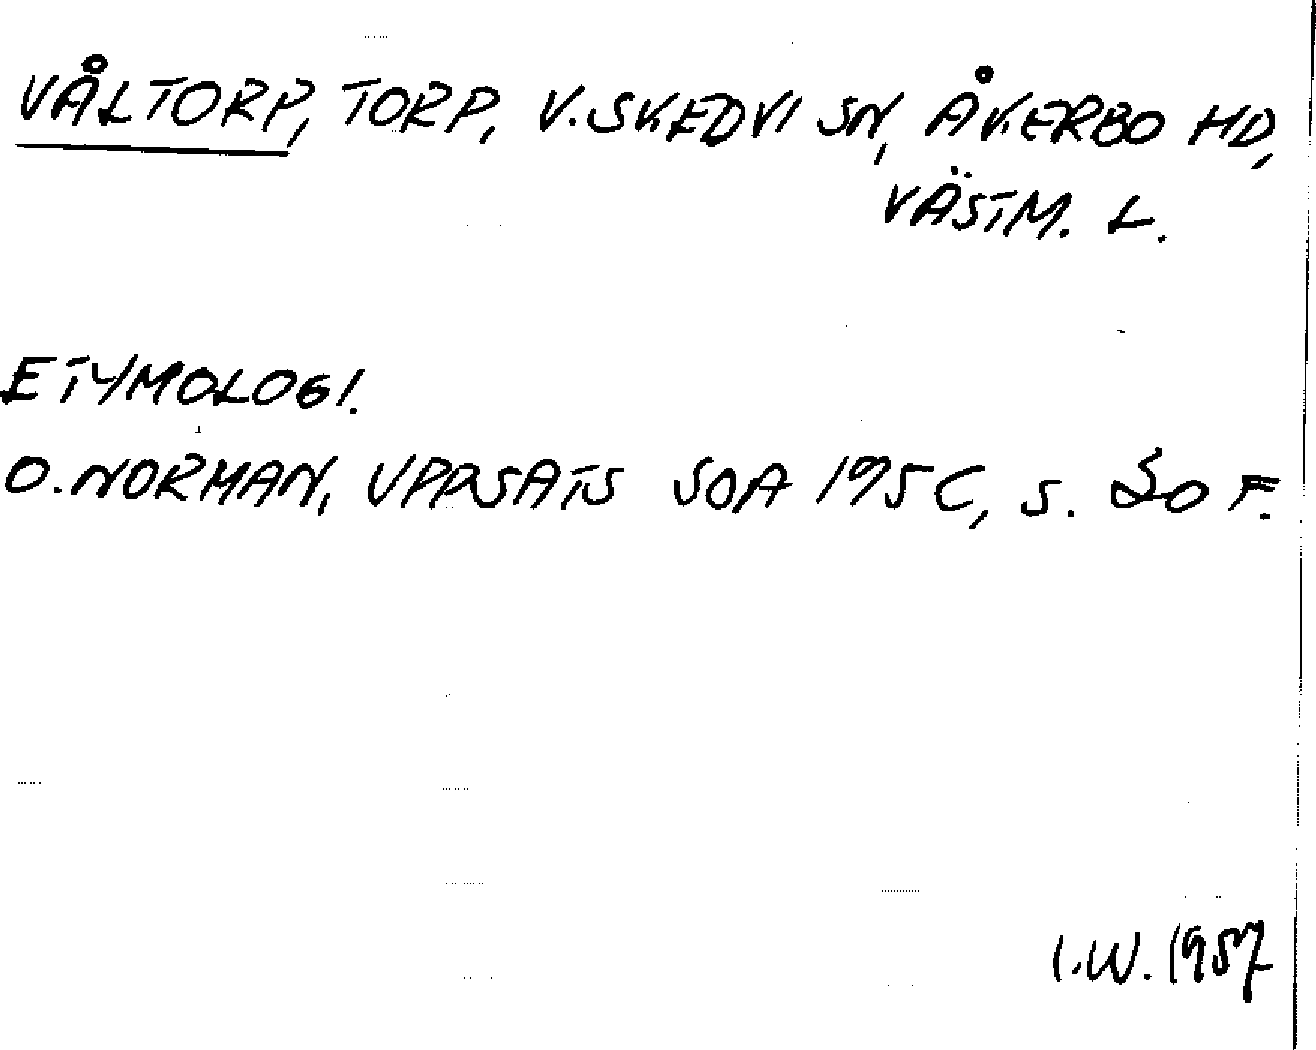 VÅLTORP, TORP, V. SKEDVI SN, ÅKERBO HD,
VÄSTM. L.
ETYMOLOGI.
O. NORMAN, UPPSATS SOA 195C, S. 20 F.
I.W. 1957